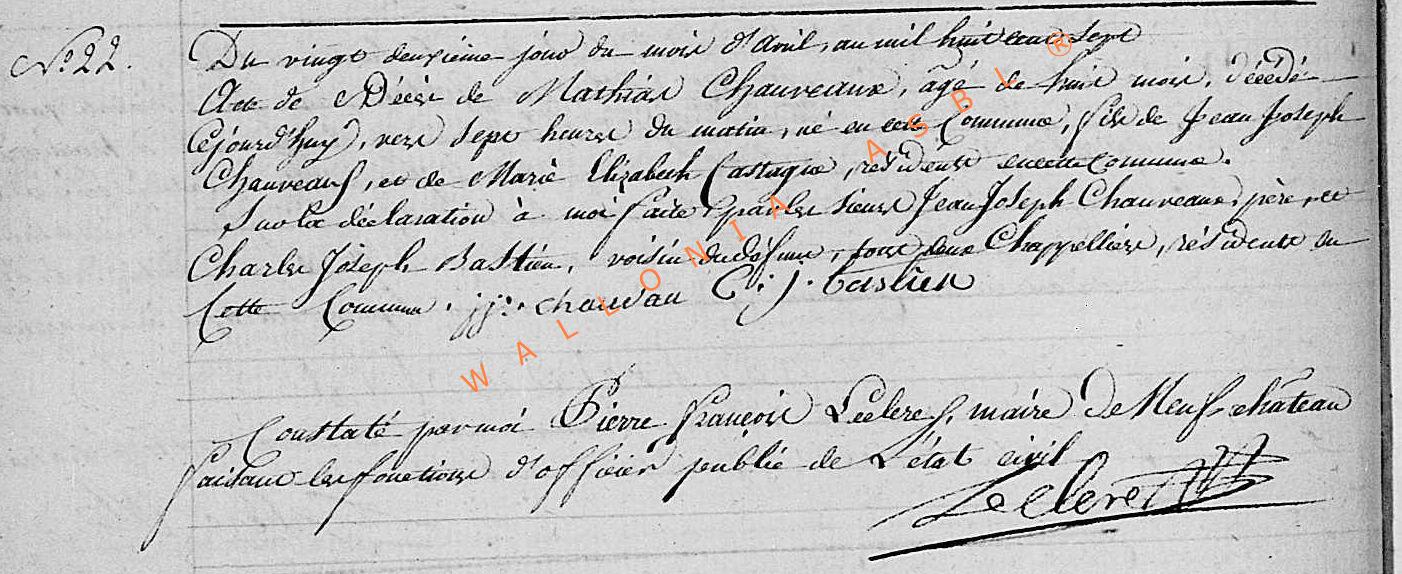 N.° 22.
Du vingt deuxième jour du mois d'Avril, an mil huit cent sept
Acte de Décès de Mathias Chauveaux, âgé de huit mois, décédé
Cejourd'huy, vers sept heures du matin, né en cette Commune, fils de Jean Joseph
Chauveaux, et de Marie Elizabeth Castagne, résidents encette Commune.
Sur la déclaration à moi faite par les sieurs Jean Joseph Chauveaux, père, et
Charles Joseph Bastien, voisin du défunt, tous deux Chappelliers, résidents en
Cette Commune. jj: chauvau C: j. bastien
Constaté par moi Pierre françois Leclerc, maire de Neufchâteau
faisant les fonctions d'officier public de L'état civil
Leclerc
WALLONIA ASBL ®